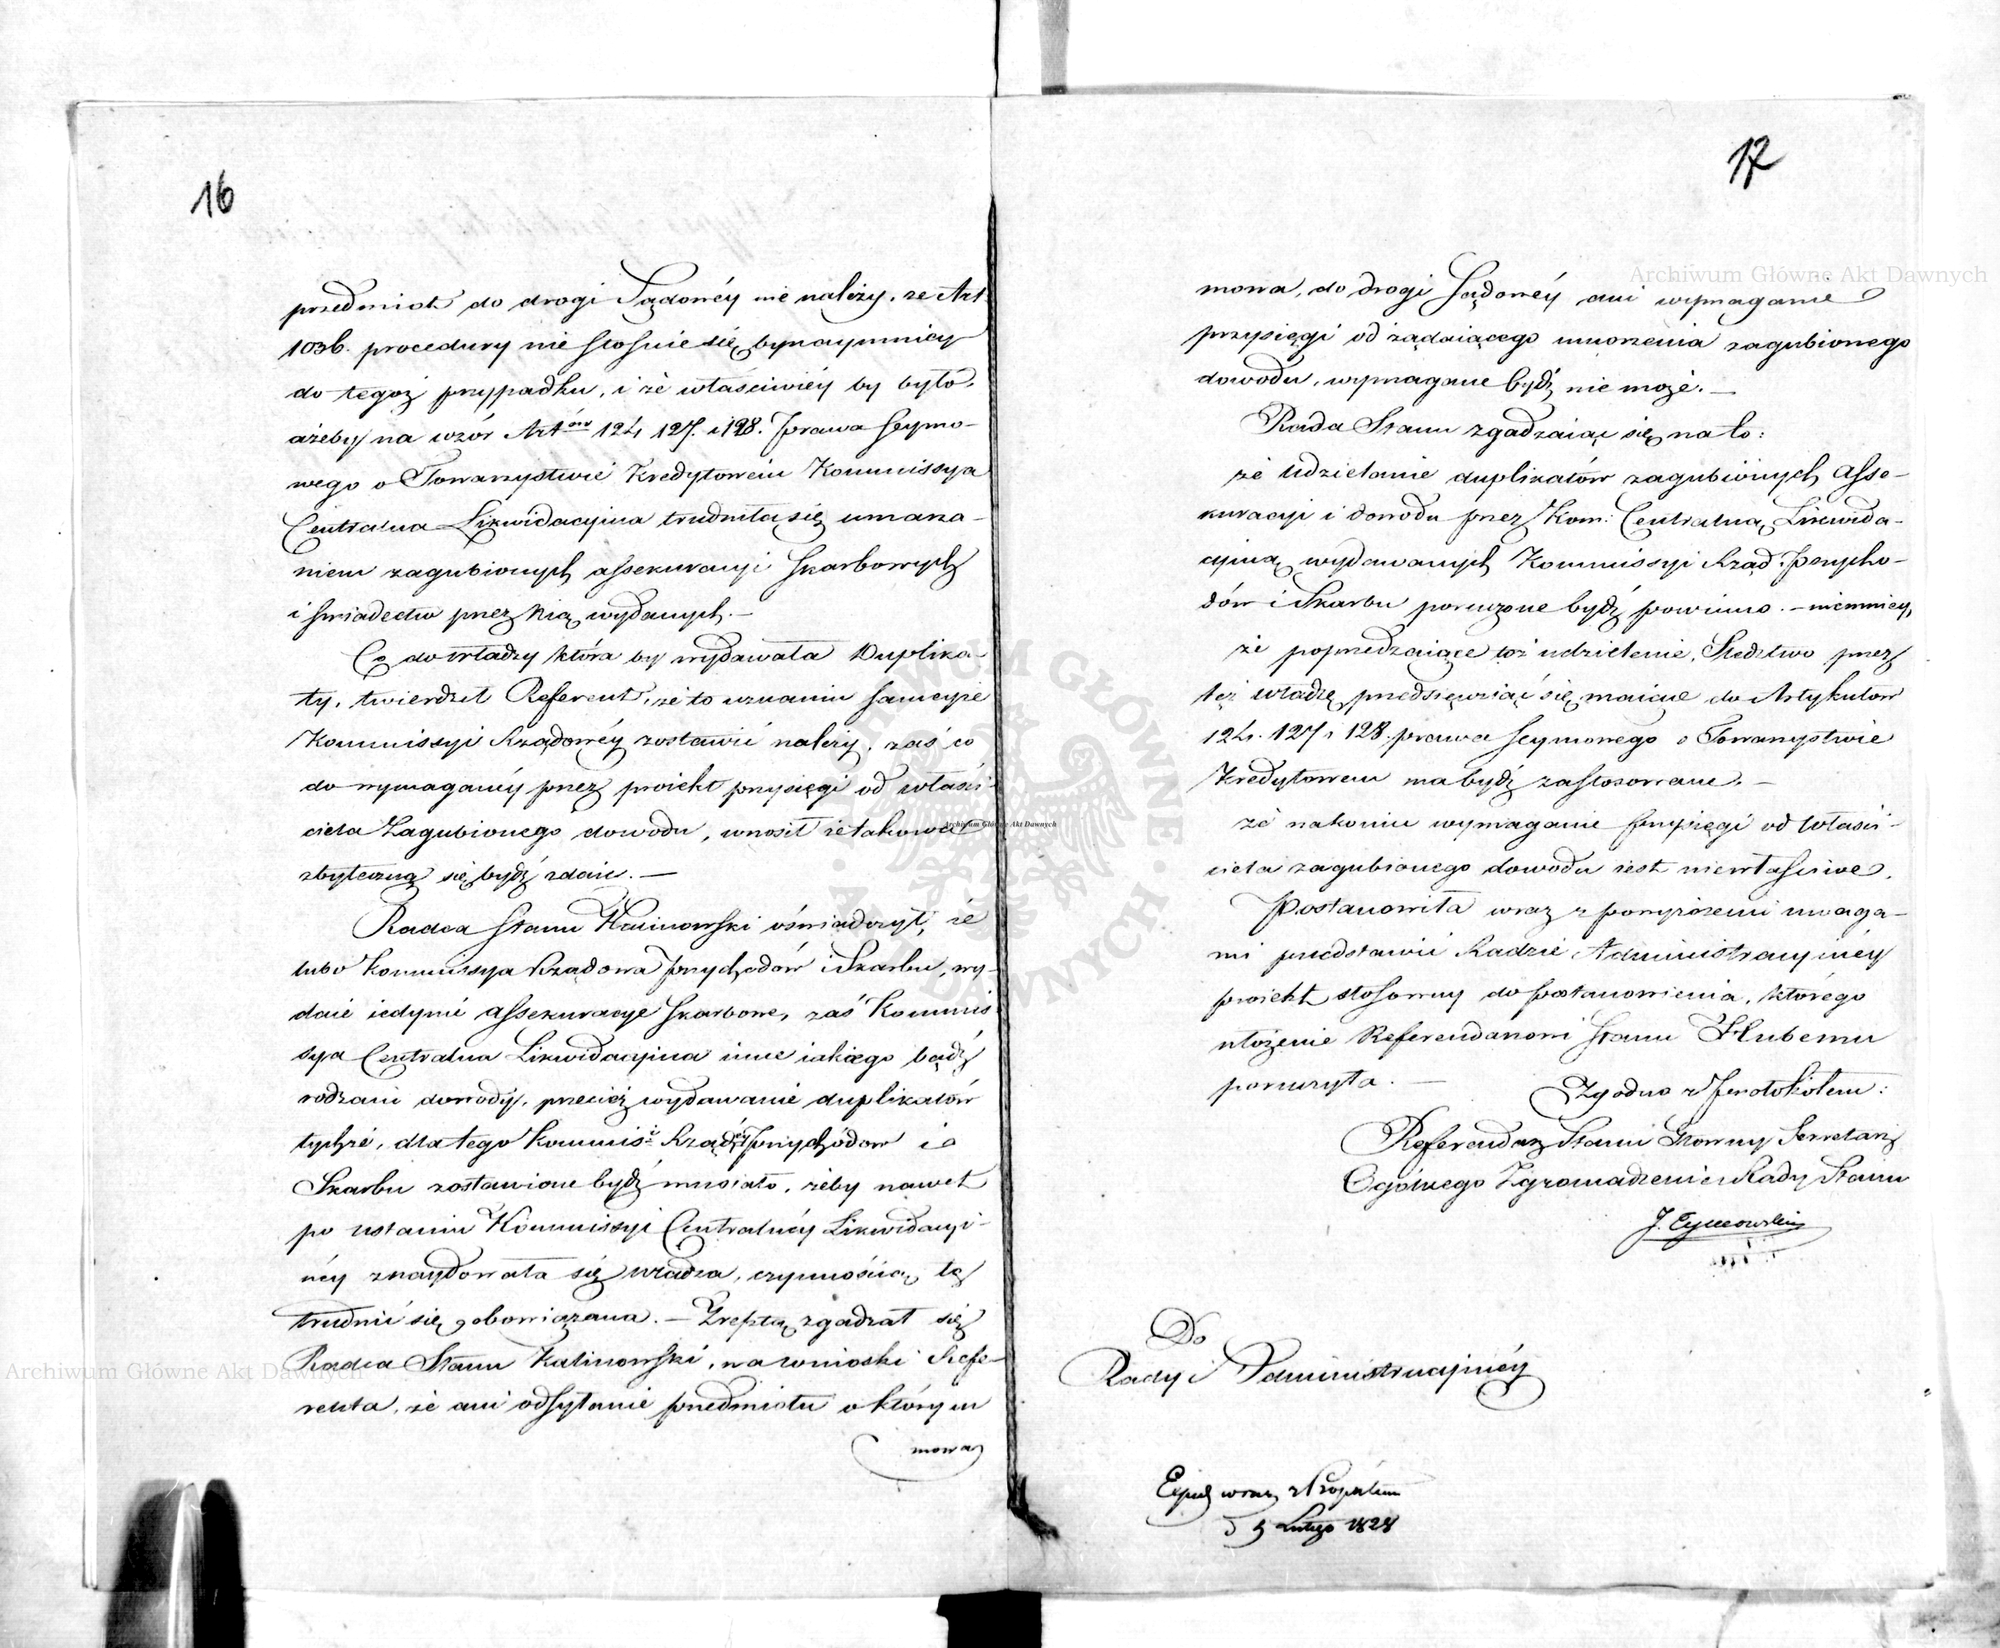 16
przedmiot do drogi Sądowéy nie należy, że Art
1036. procedury nie stosuie się bynaymniéy
do tegoż przypadku, i że właściwiéy by było,
ażeby na wzór Art:ów 124, 127. i 128. prawa Seymo-
wego o Towarzystwie Kredytowém Kommissya
Centralna Likwidacyina trudniła się umarza-
niem zagubionych assekuracyi skarbowych
i świadectw przez Nią wydanych.—
Co do władzy która by wydawała Duplika-
ty, twierdził Referent, że to uznaniu saméyże
Kommissyi Rządowéy zostawić należy, zaś co
do wymaganéy przez proiekt przysięgi od właści-
ciela zagubionego dowodu, wnosił że takowa
zbyteczną się bydź zdaie.—
Radca Stanu Kalinowski oświadczył, że
lubo Kommissya Rządowa Przychodów i Skarbu, wy-
daie iedynie assekuracye skarbowe, zaś Kommis
sya Centralna Likwidacyina inne iakiego bądź
rodzaiu dowody, przecież wydawanie duplikatów
tychże, dla tego Kommis:i Rząd:éy Przychodów i
Skarbu zostawione bydź musiało, żeby nawet
po ustaniu Kommissyi Centralnéy Likwidacyi-
néy znaydowała się władza, czynnością tą
trudnić się obowiązana.— Zresztą zgadzał się
Radca Stanu Kalinowski, na wnioski Refe-
renta, że ani odsyłanie przedmiotu o którym
mowa
17
mowa, do drogi Sądowéy ani wymaganie
przysięgi od żądaiącego umorzenia zagubionego
dowodu, wymagane bydź nie może.—
Rada Stanu zgadzaiąc się na to:
że udzielanie duplikatów zagubionych Asse-
kuracyi i dowodu przez Kom: Centralną Likwida-
cyiną wydawanych Kommissyi Rząd: Przycho-
dów i Skarbu poruczone bydź powinno.— niemniéy,
że poprzedzaiące toż udzielenie, Śledztwo przez
też władzę przedsięwziąć się maiące do Artykułów
124. 127 i 128. prawa Seymowego o Towarzystwie
Kredytowem ma bydź zastosowane.—
że nakoniec wymaganie przysięgi od właści-
ciela zagubionego dowodu iest niewłaściwe,
Postanowiła wraz z powyższemi uwaga-
mi przedstawić Radzie Administracyinéy
proiekt stosowny do postanowienia, którego
ułożenie Referendarzowi Stanu Hubemu
poruczyła.—
Zgodno z Protokołem:
Referendarz Stanu Główny Sekretarz
Ogólnego Zgromadzenia Rady Stanu
J. Tymowski
Do
Rady Administracyinéy
wraz z
d 9 Lutego 1828
Archiwum Główne Akt Dawnych
Archiwum Główne Akt Dawnych
Archiwum Główne Akt Dawnych
ARCHIWUM GŁÓWNE AKT DAWNYCH